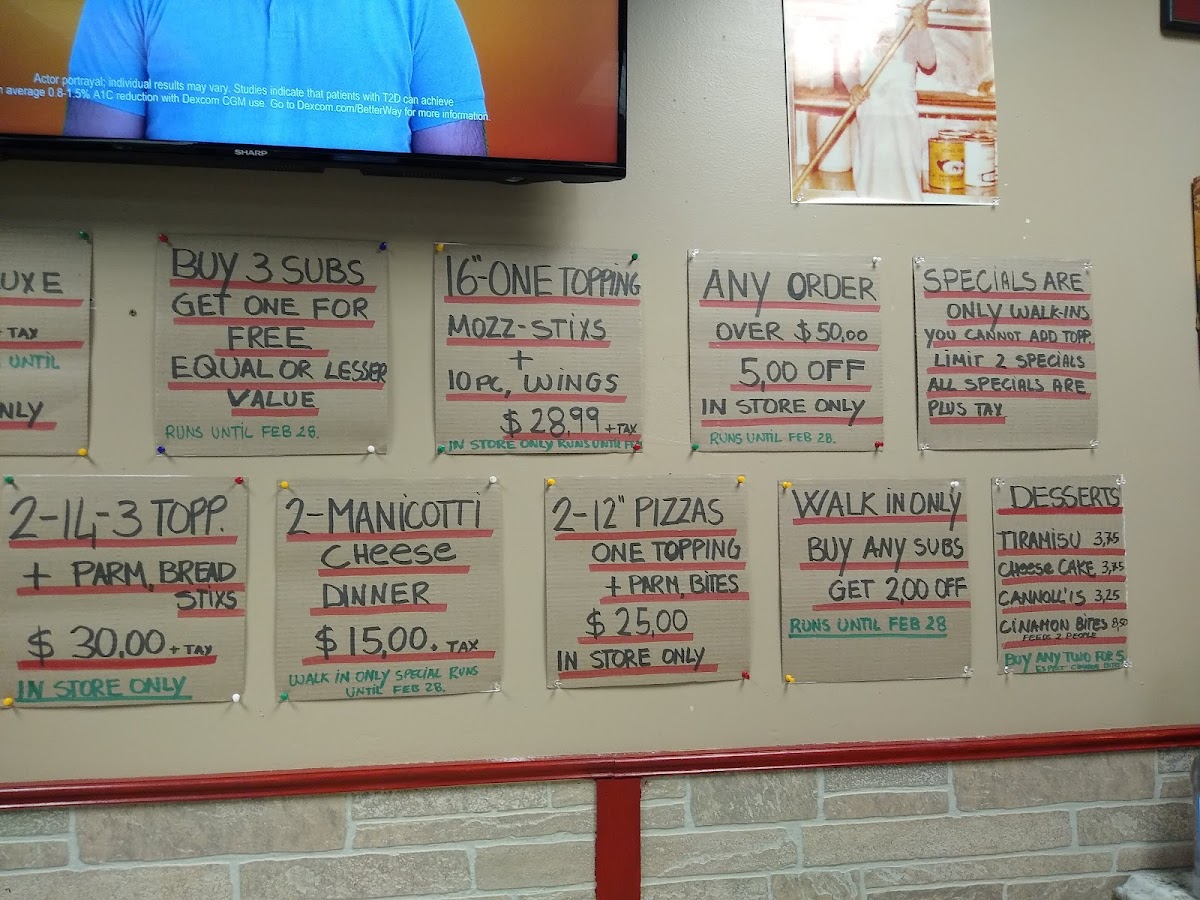 Actor portrayal; individual results may vary. Studies indicate that patients with T2D can achieve
average 0.8-1.5% A1C reduction with Dexcom CGM use. Go to Dexcom.com/BetterWay for more information.
SHARP
UXE
+ TAX
UNTIL
NLY
BUY 3 SUBS
GET ONE FOR
FREE
EQUAL OR LESSER
VALUE
RUNS UNTIL FEB 28.
16"-ONE TOPPING
MOZZ-STIXS
+
10 PC, WINGS
$28,99 + TAX
IN STORE ONLY RUNS UNTIL
ANY ORDER
OVER $50,00
5,00 OFF
IN STORE ONLY
RUNS UNTIL FEB 28.
SPECIALS ARE
ONLY WALK-INS
YOU CANNOT ADD TOPP.
LIMIT 2 SPECIALS
ALL SPECIALS ARE
PLUS TAX
2-14-3 TOPP.
+ PARM, BREAD
STIXS
$30,00 + TAX
IN STORE ONLY
2-MANICOTTI
CHEESE
DINNER
$15,00. + TAX
WALK IN ONLY SPECIAL RUNS
UNTIL FEB 28.
2-12" PIZZAS
ONE TOPPING
+ PARM, BITES
$25,00
IN STORE ONLY
WALK IN ONLY
BUY ANY SUBS
GET 2,00 OFF
RUNS UNTIL FEB 28
DESSERTS
TIRAMISU 3,75
CHEESE CAKE 3,75
CANNOLL'IS 3,25
CINAMON BITES 8,50
FEEDS 2 PEOPLE
BUY ANY TWO FOR 5